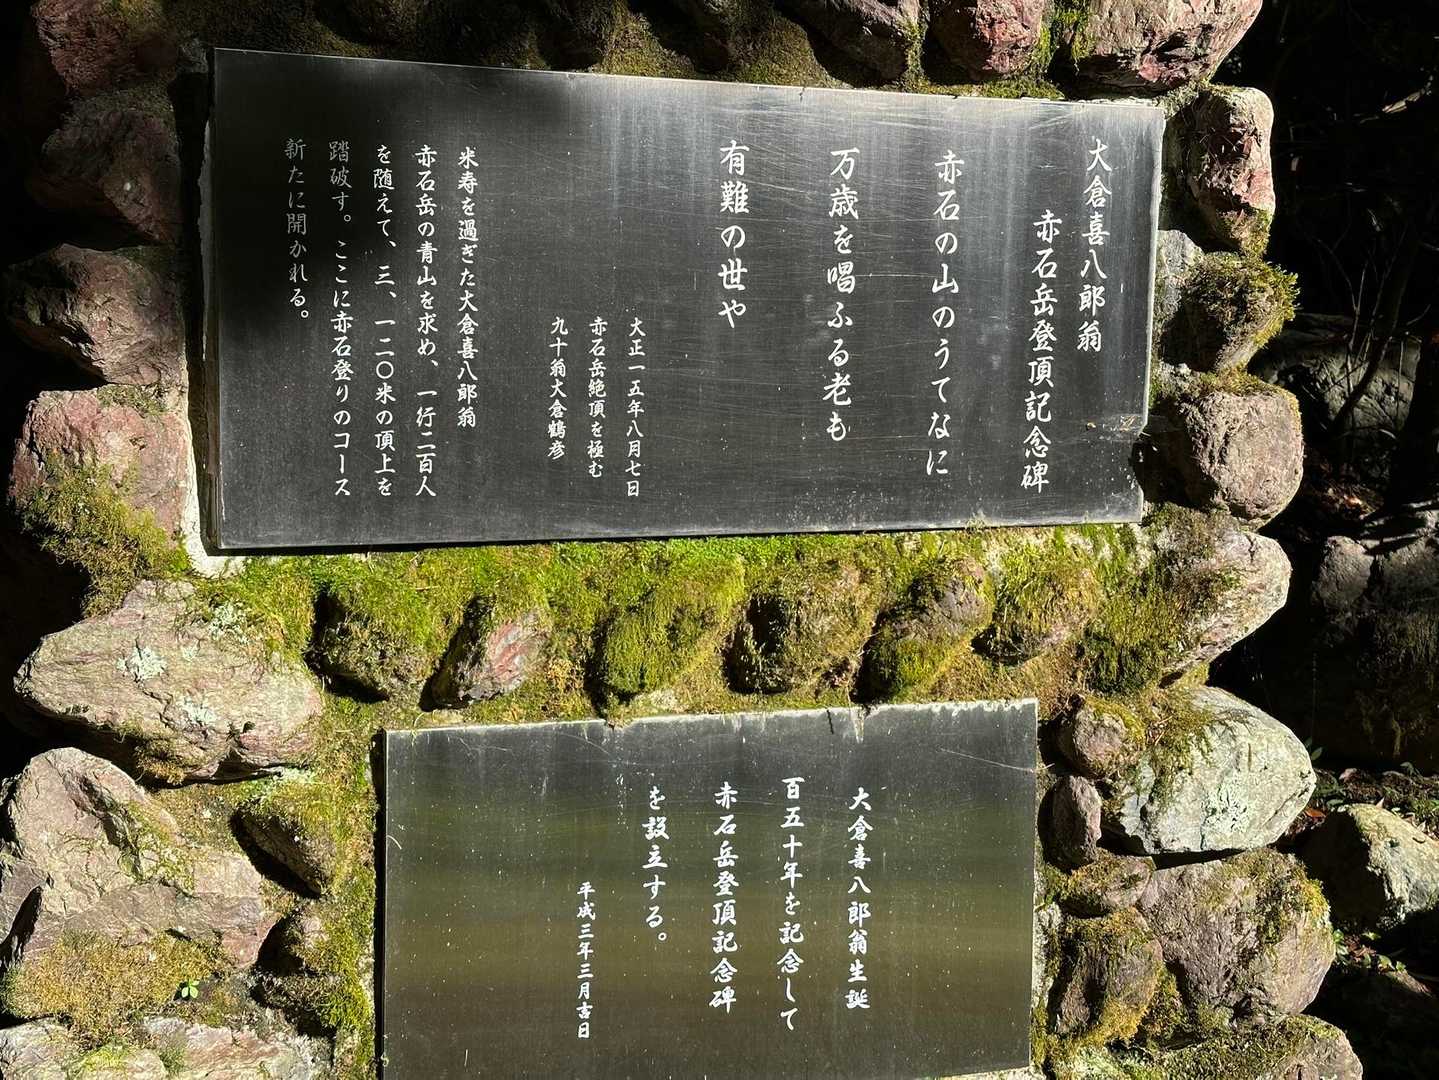 大倉喜八郎翁
赤石岳登頂記念碑
赤石の山のうてなに
万歳を唱ふる老も
有難の世や
大正一五年八月七日
赤石岳絶頂を極む
九十翁大倉鶴彦
米寿を過ぎた大倉喜八郎翁
赤石岳の青山を求め、一行二百人
を随えて、三、一二〇米の頂上を
踏破す。ここに赤石登りのコース
新たに開かれる。
大倉喜八郎翁生誕
百五十年を記念して
赤石岳登頂記念碑
を設立する。
平成三年三月吉日